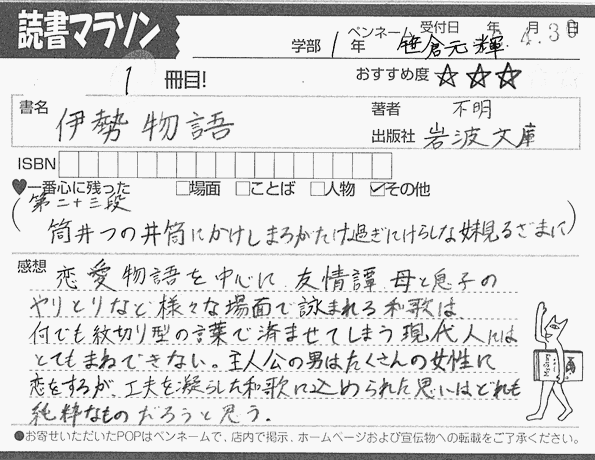 読書マラソン
学部 1年 ペンネーム 笹倉元輝 受付日 年 4月30日
1冊目! おすすめ度 ☆☆☆
書名 伊勢物語
著者 不明
出版社 岩波文庫
ISBN
♥一番心に残った □場面 □ことば □人物 ☑その他
(第二十三段
筒井つの井筒にかけしまろがたけ過ぎにけらしな妹見るざまに)
感想 恋愛物語を中心に、友情譚、母と息子の
やりとりなど様々な場面で詠まれる和歌は、
何でも紋切り型の言葉で済ませてしまう現代人には
とてもまねできない。主人公の男はたくさんの女性に
恋をするが、工夫を凝らした和歌に込められた思いはどれも
純粋なものだろうと思う。
●お寄せいただいたPOPはペンネームで、店内で掲示、ホームページおよび宣伝物への転載をご了承ください。